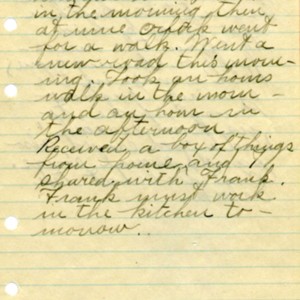 in the morning then
at nine oclock went
for a walk. Went a
new road this morn-
ing. Took an hours
walk in the morn-
and an hour in
the afternoon
Received a box of things
from home and
shared with Frank.
Frank must work
in the kitchen to-
morrow.